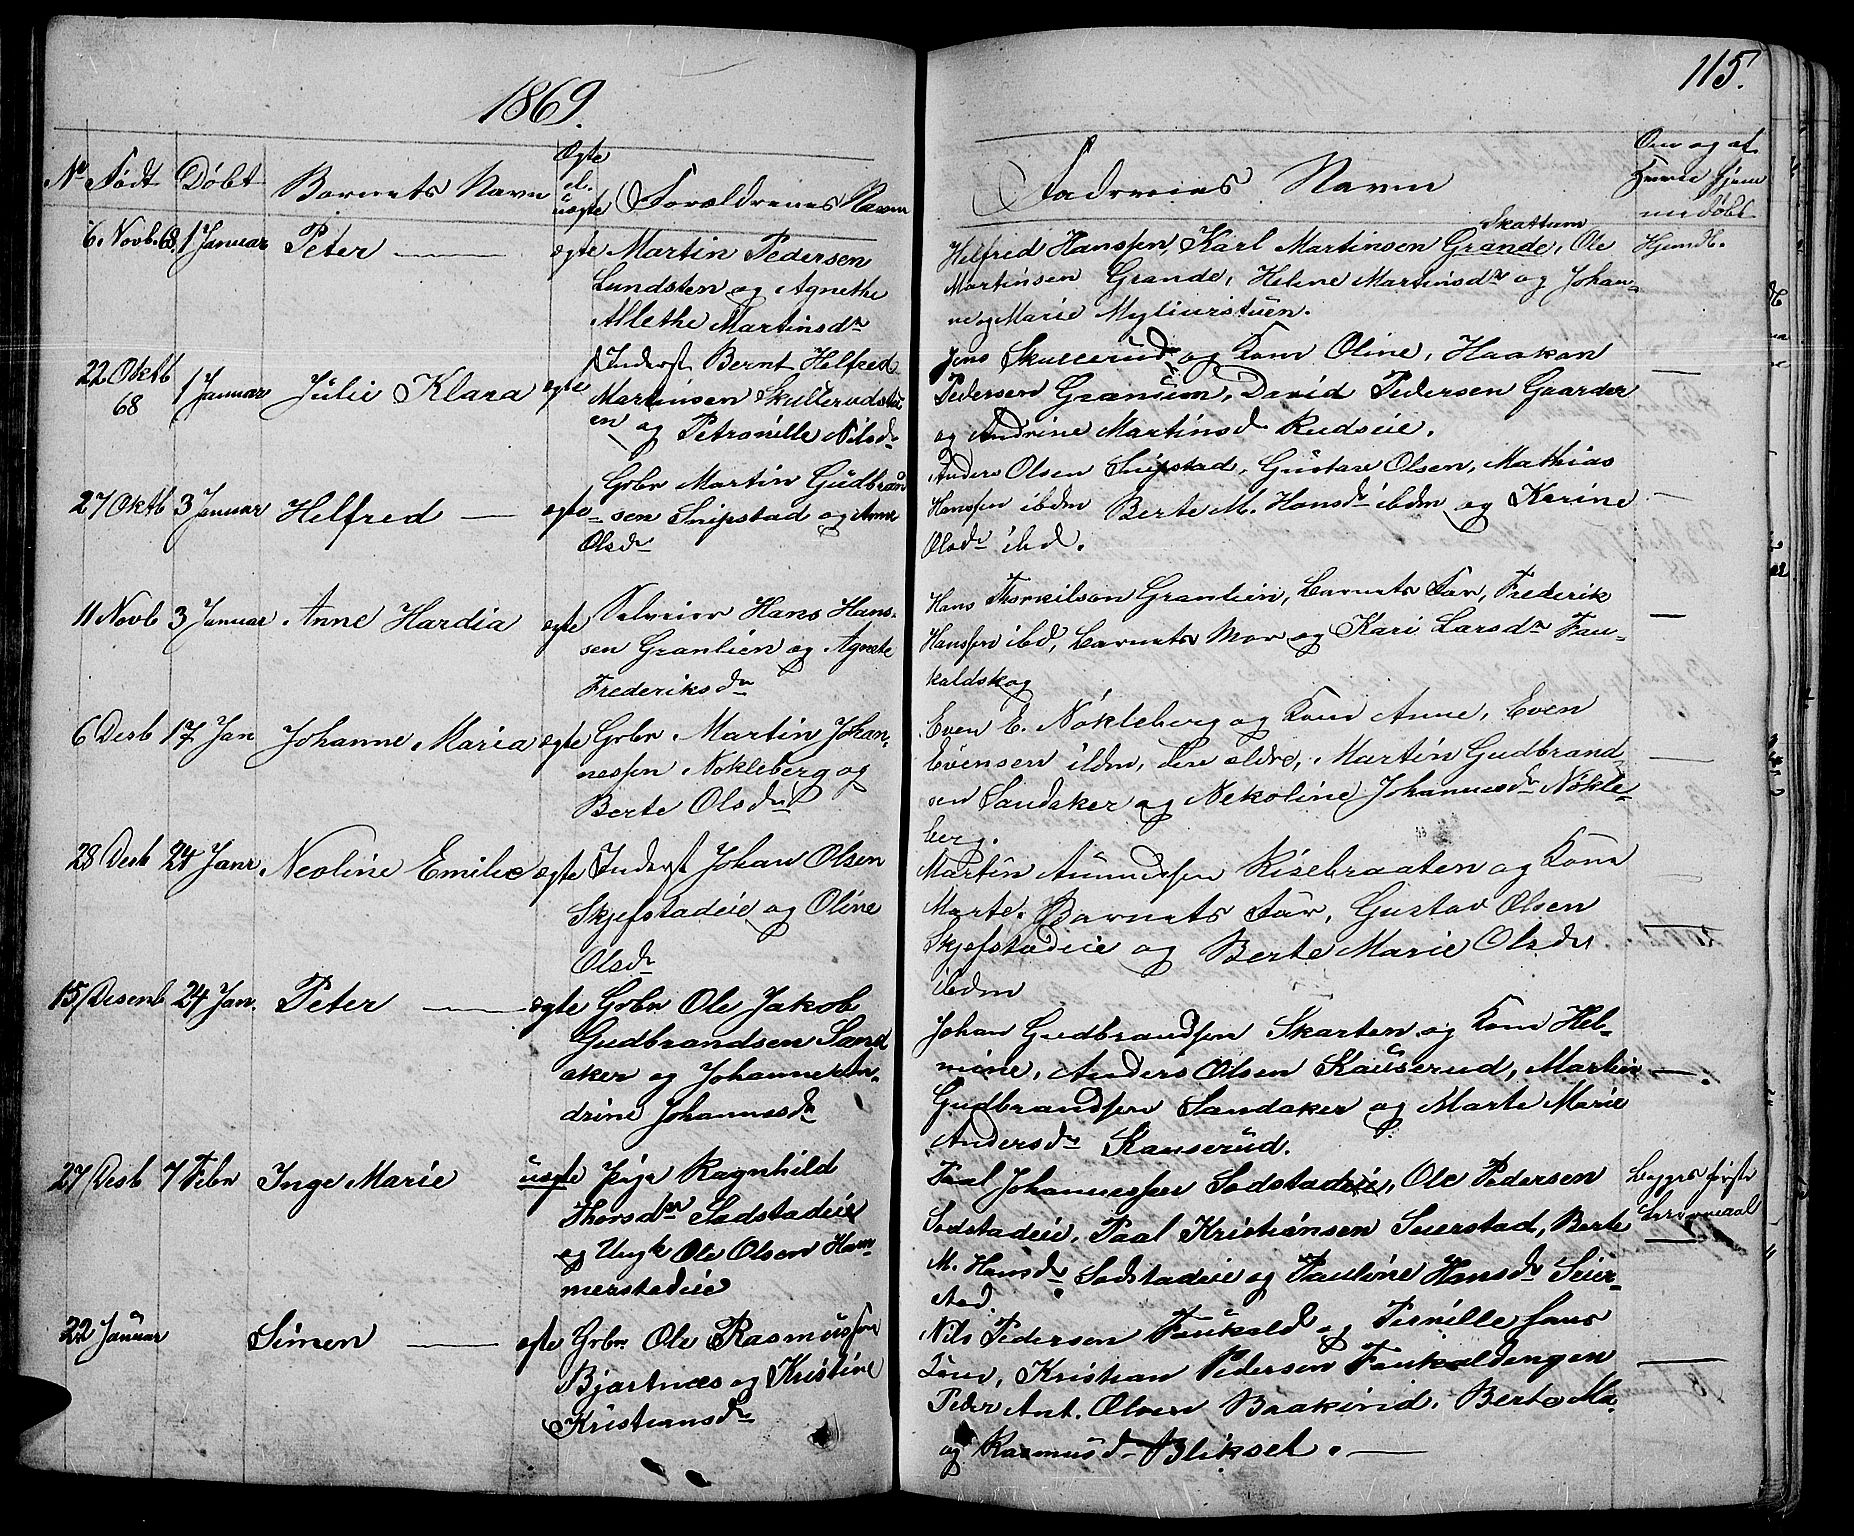 1869.
115.
No Født Døbt Barnets Navn Ægte el. uægte Forældrenes Navn
Fadrenes Navn
Om og af hjem
medøbt
6. Novb. 68 1 Januar Peter — ægte Martin Pedersen
Lundsten og Agnethe
Alethe Martinsdr
Skattum
Helfred Hanssen, Karl Martinsen Grande, Ole Hjemdb.
Martinsen Grande, Helene Martinsdr og Johan-
ne og Marie Myliurstuen.
22 Oktb 68 1 Januar Julie Klara ægte Inderst Bernt Helfred
Martinsen Skullerudstu
en og Petronille Nilsdr
Jens Skullerud og Kone Oline, Haakon
Pedersen Granum, David Pedersen Gaarder —
og Andrine Martinsd Rudseie.
27 Oktb 3 Januar Helfred — ægte Grbr Martin Gudbran
sen Snipstad og Anne
Olsdr
Anders Olsen Snipstad, Gustav Olsen, Mathias
Hanssen ibdm Berte M. Hansdr ibdm og Karine —
Olsdr ibd.
11 Novb 3 Januar Anne Hardia ægte Selveier Hans Hans-
sen Granlien og Agnete
Frederiksdr
Hans Thorkilsen Granlien, Barnets Far, Frederik
Hanssen ibd, Barnets Mor og Kari Larsdr Fau- —
kaldskog
6 Desb 17 Jan Johanne Maria ægte Grbr. Martin Johan-
nessen Nøkleberg og
Berte Olsdr
Even E. Nøkleberg og Kone Anne, Even
Evensen ibdm, den ældre, Martin Gudbrand- —
sen Sandaker og Nekoline Johannesdr Nøkle-
berg.
28 Desb 24 Janr Neoline Emilie ægte Inderst Johan Olsen
Skjefstadeie og Oline
Olsdr
Martin Amundssen Risebraaten og Kone
Marte. Barnets Far, Gustav Olsen
Skjefstadeie og Berte Marie Olsdr —
ibdm
15 Desemb 24 Jan. Peter — ægte Grbr Ole Jakob
Gudbrandsen Sand
aker og Johanne An-
drine Johannesdr
Johan Gudbrandssen Skarten og Kone Hel-
mine, Anders Olsen Kauserud, Martin —.
Gudbrandssen Sandaker og Marte Marie
Andersdr Kauserud.
27 Desb 7 Febr Inge Marie uægte Pige Ragnhild
Thorsdr Sodstadeie
og Ungk Ole Olsen Ham
merstadeie
Paal Johannessen Sodstadeie, Ole Pedersen Begges første
Sodstadeie, Paal Kristiansen Seierstad, Berte Leiermaal
M. Hansdr Sodstadeie og Pauline Hansdr Seier-
stad.
22 Januar Simen — ægte Grbr. Ole Rasmussen
Bjartnæs og Kristine
Kristiansdr
Nils Pedersen Faukald og Pernille hans
Kone, Kristian Pedersen Faukaldengen —
Peder Ant. Olsen Braakerud. Berte Ma.
og Rasmusdr Blikset. —